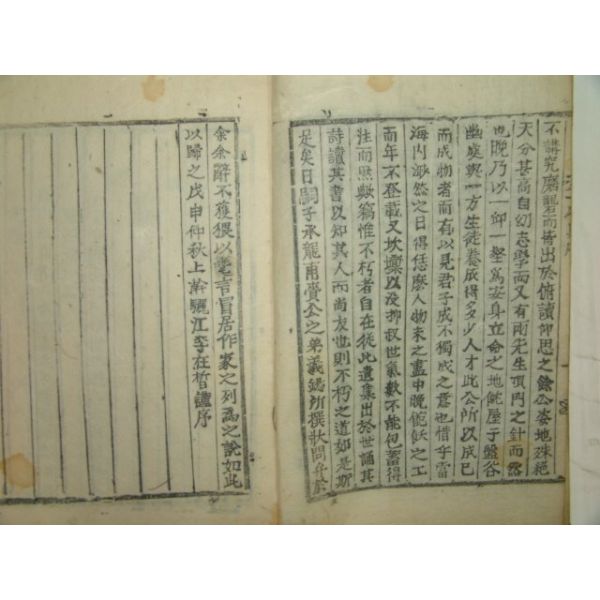 不講究磨礱而皆出於俯讀仰思之餘公姿地殊絕
天分甚高自幼志學而又有兩先生頂門之針而
也晩乃以一仰一堅爲安身立命之地 屋子盤谷
幽處與一方生徒養成得多少人才此公所以成己
而成物者而有以見君子成不獨成之意也惜乎當
海內渺然之日得恁麼人物來之盡中晩 之工
而年不登載又坎壈以沒抑叔世氣數不能包蓄得
住而然歟竊惟不朽者自在從此遺集出於世誦其
詩讀其書以知其人而尚友也則不朽之道如是斯
足矣日嗣子承龍甫賫公之弟義鎬所撰狀問弁於
余余辭不獲猥以耄言冒居作家之列爲之說如此
以歸之戊申仲秋上澣驪江李在晳謹序